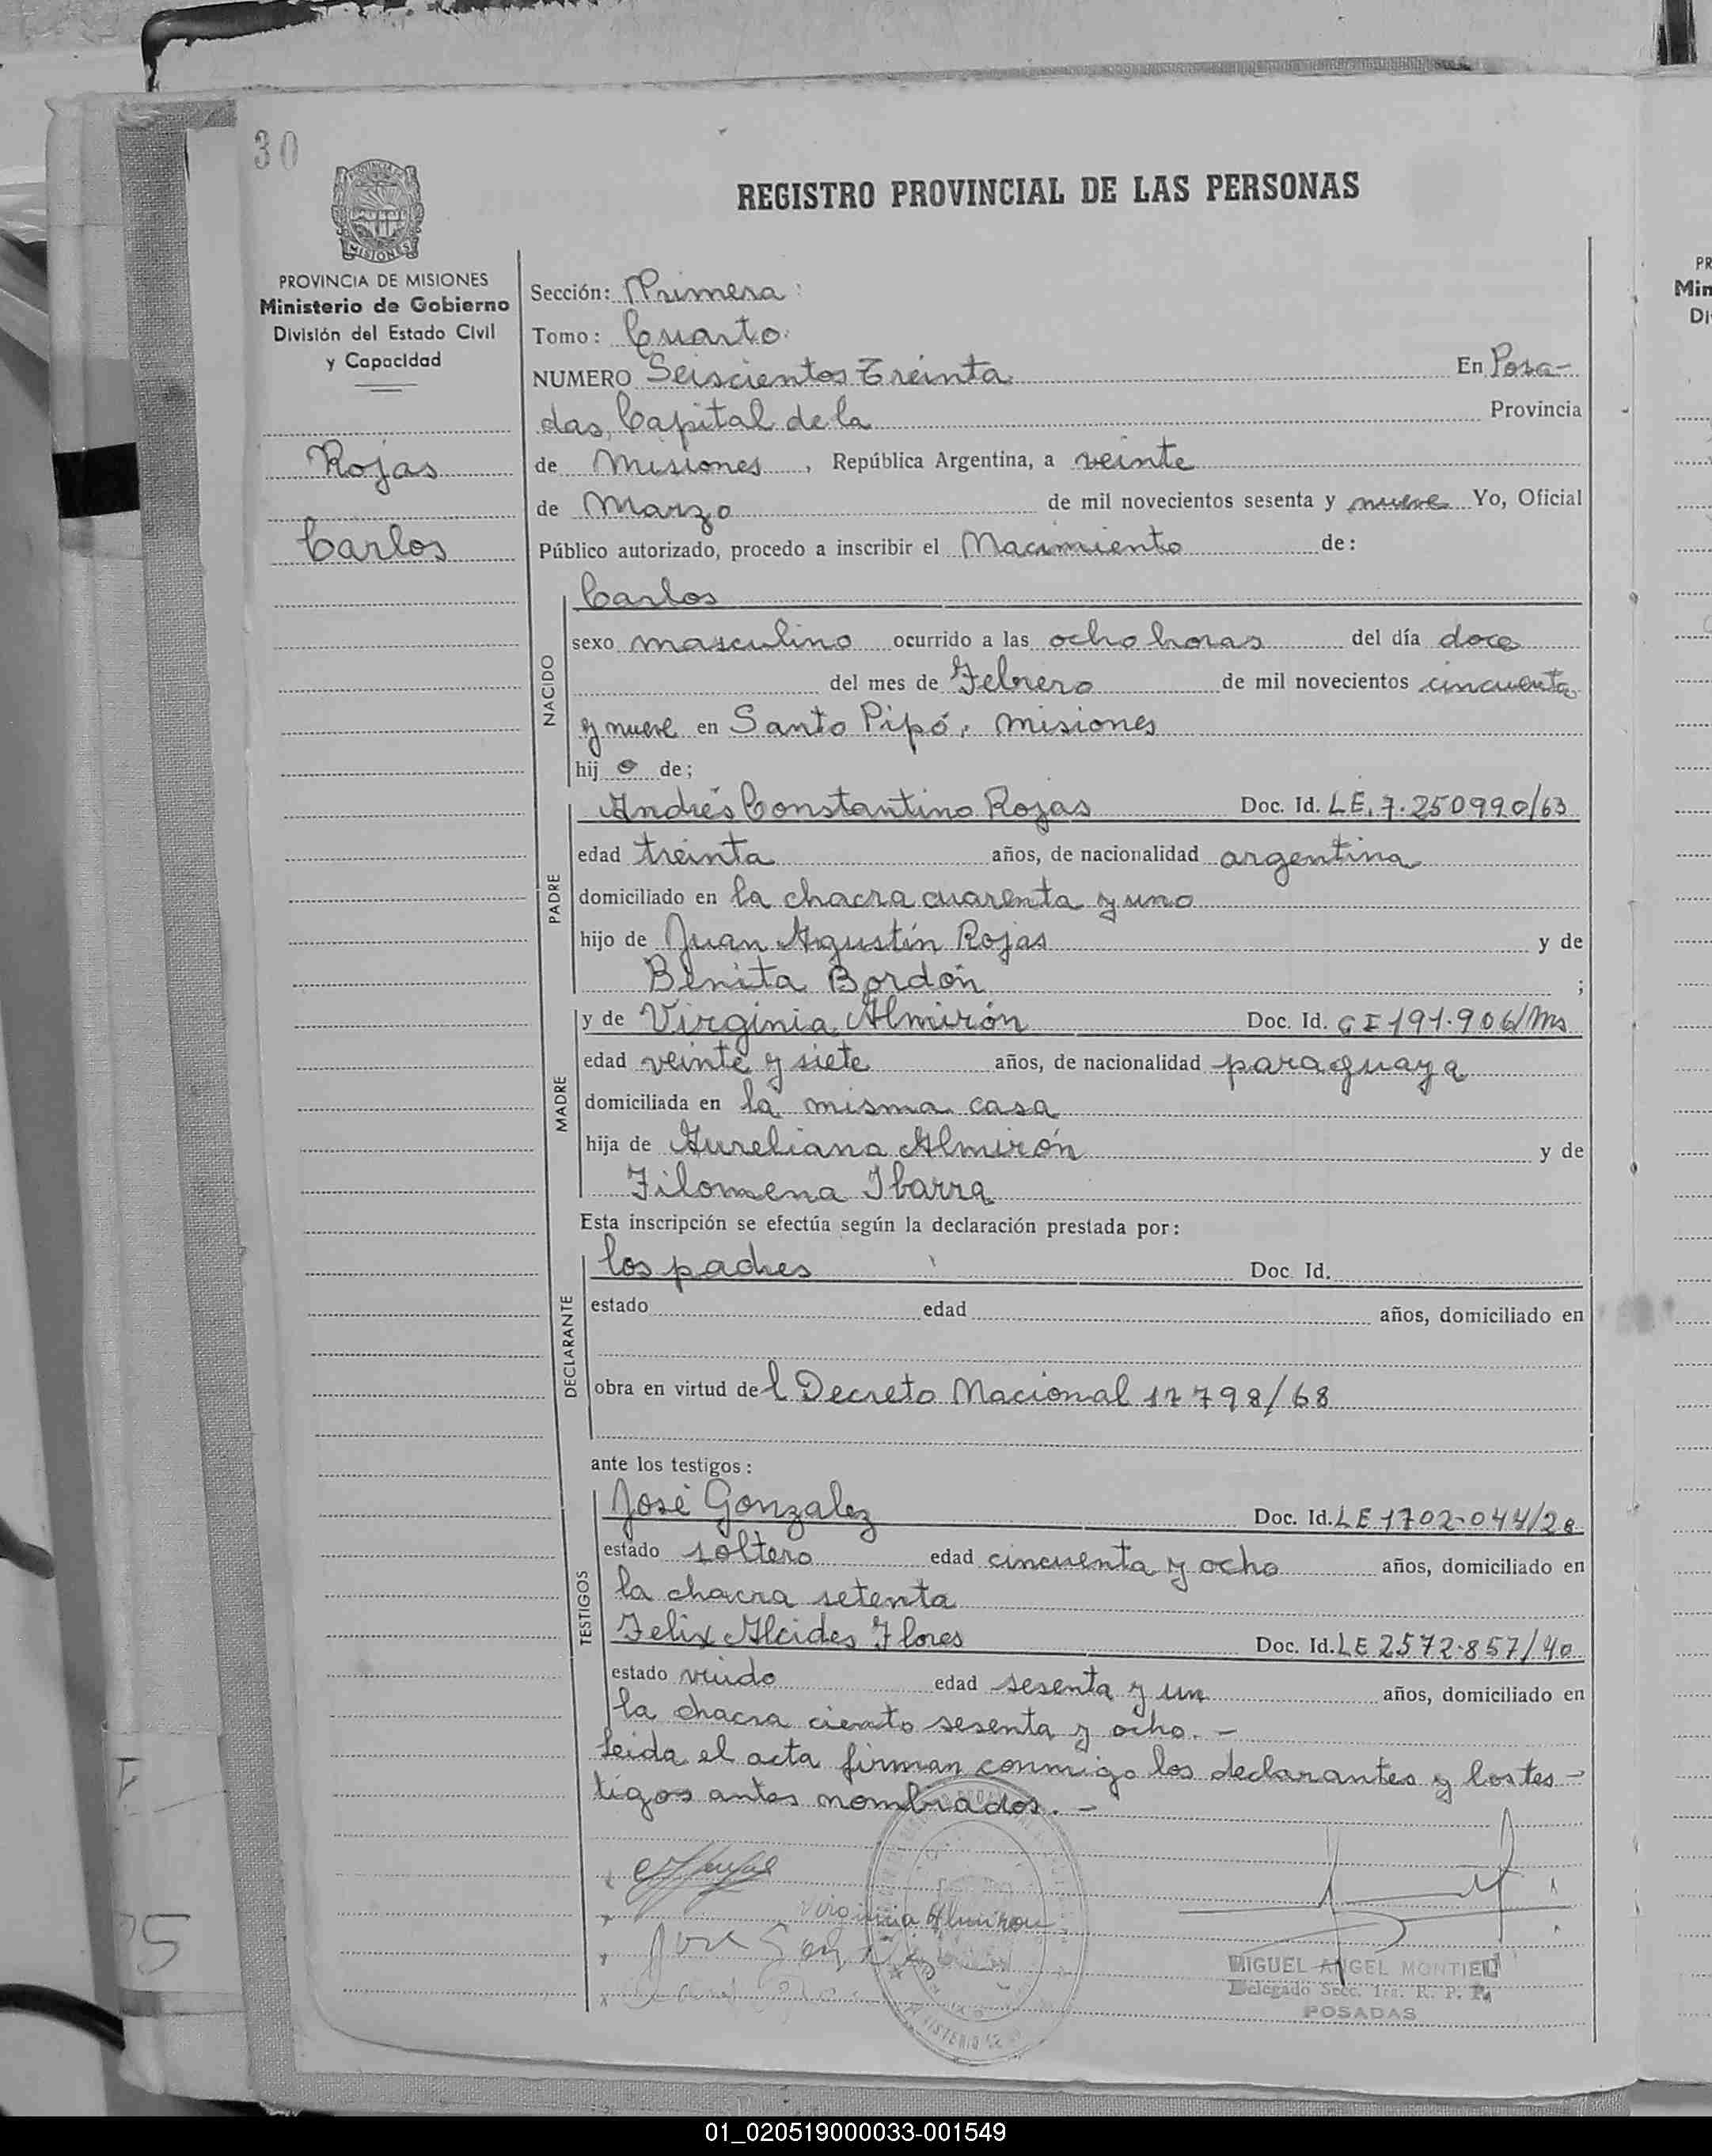 30
REGISTRO PROVINCIAL DE LAS PERSONAS
MISIONES
PROVINCIA DE MISIONES
Ministerio de Gobierno
División del Estado Civil
y Capacidad
Rojas
Carlos
Sección: Primera
Tomo: Cuarto.
NUMERO Seiscientos Treinta. En Posa-
das, Capital de la Provincia
de Misiones, República Argentina, a veinte
de Marzo de mil novecientos sesenta y nueve Yo, Oficial
Público autorizado, procedo a inscribir el Nacimiento de:
NACIDO
Carlos
sexo masculino ocurrido a las ocho horas del día doce
del mes de Febrero de mil novecientos cincuenta
y nueve en Santo Pipó, Misiones
hij o de;
PADRE
Andrés Constantino Rojas Doc. Id. LE. 7.250990/63
edad treinta años, de nacionalidad argentina
domiciliado en la chacra cuarenta y uno
hijo de Juan Agustín Rojas y de
Benita Bordón ;
MADRE
y de Virginia Almirón Doc. Id. CI 191.906/Ms
edad veinte y siete años, de nacionalidad paraguaya
domiciliada en la misma casa
hija de Aureliano Almirón y de
Filomena Ibarra
Esta inscripción se efectúa según la declaración prestada por:
DECLARANTE
los padres Doc. Id.
estado edad años, domiciliado en
obra en virtud de l Decreto Nacional 17798/68
ante los testigos:
TESTIGOS
José Gonzalez Doc. Id. LE 1702-044/28
estado soltero edad cincuenta y ocho años, domiciliado en
la chacra setenta
Felix Alcides Flores Doc. Id. LE 2572.857/40
estado viudo edad sesenta y un años, domiciliado en
la chacra ciento sesenta y ocho. -
leida el acta firman conmigo los declarantes y los tes-
tigos antes nombrados. -
Virginia Almiron
Jose Gonzalez
MIGUEL ANGEL MONTIEL
Delegado Secc. 1ra. R. P. P.
POSADAS
01_020519000033-001549